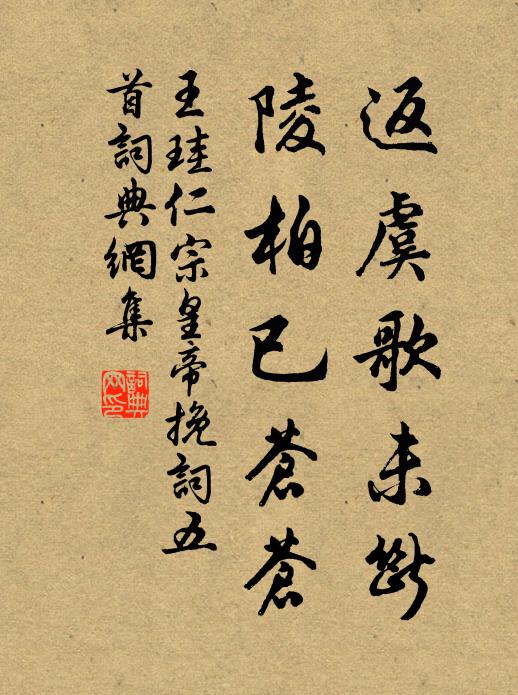 返虞歌未斷
陵柏已蒼蒼
王珪仁宗皇帝挽詞五
首詞典網集
詞典網印